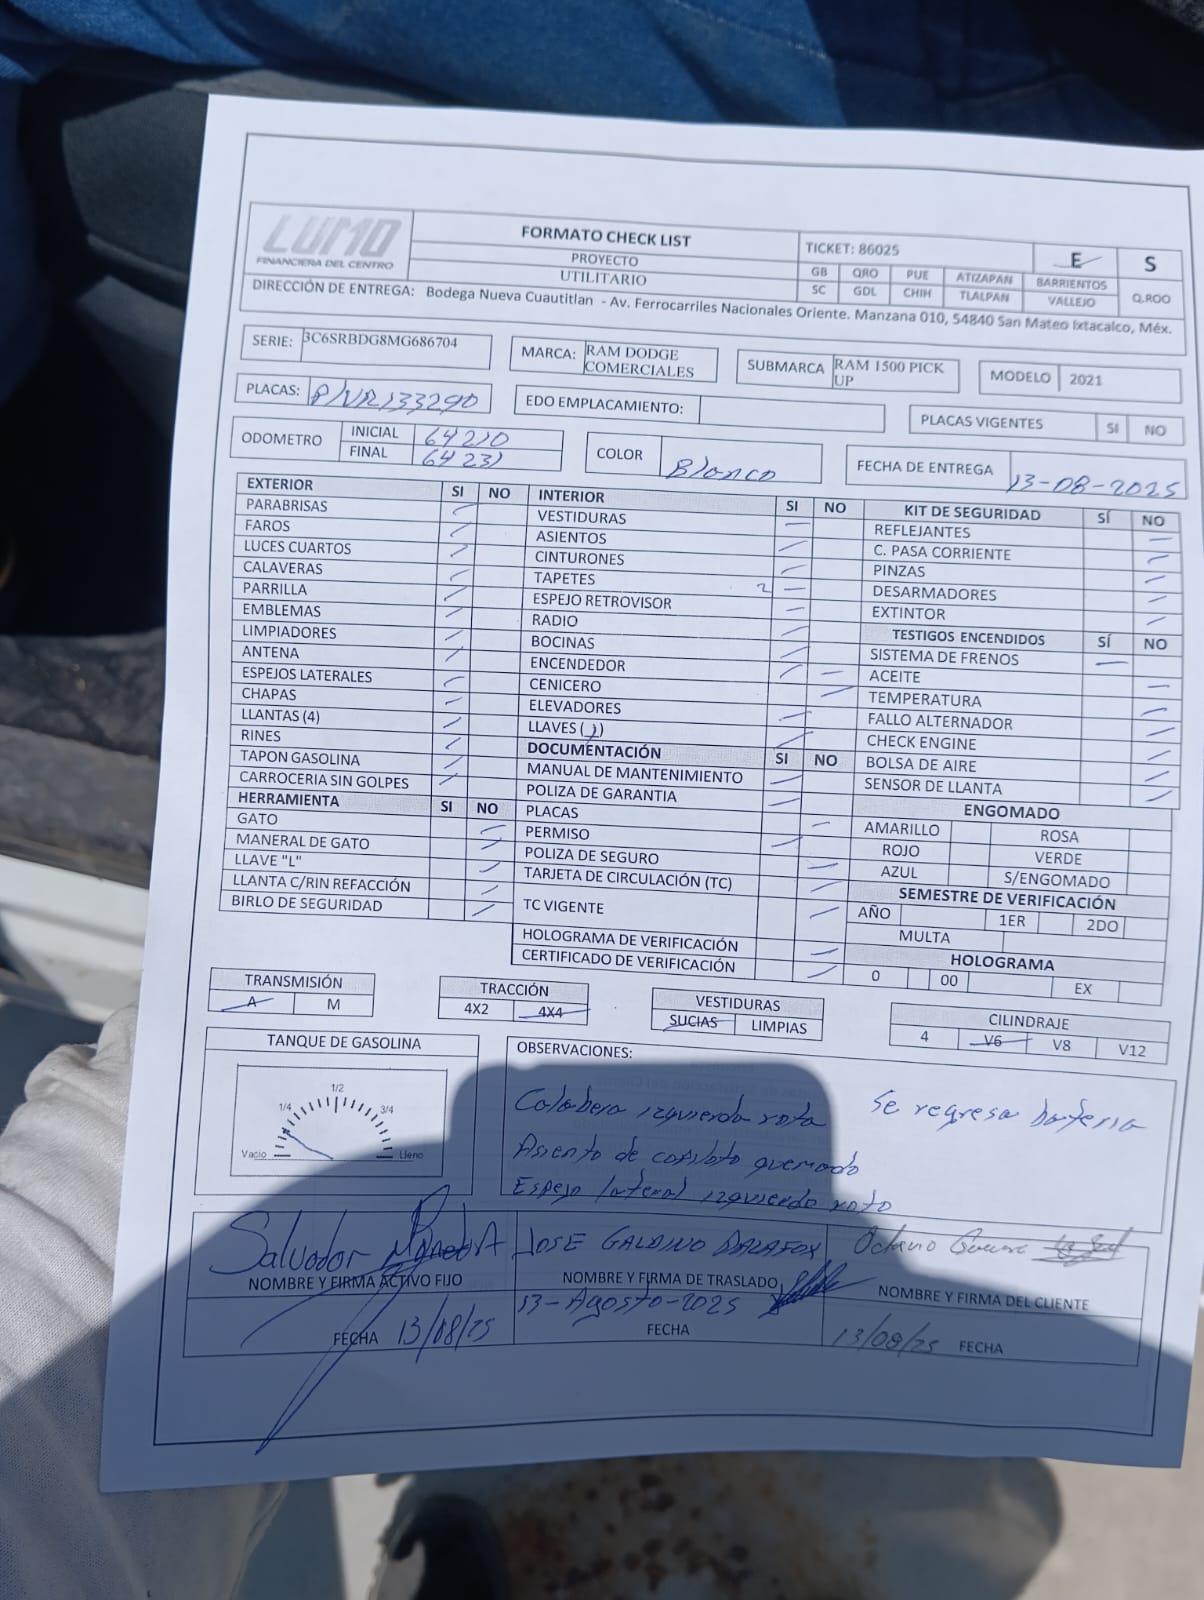 LUMO
FINANCIERA DEL CENTRO
FORMATO CHECK LIST
PROYECTO
UTILITARIO
TICKET: 86025
E S
GB QRO PUE ATIZAPAN BARRIENTOS
SC GDL CHIH TLALPAN VALLEJO Q.ROO
DIRECCIÓN DE ENTREGA: Bodega Nueva Cuautitlan - Av. Ferrocarriles Nacionales Oriente. Manzana 010, 54840 San Mateo Ixtacalco, Méx.
SERIE: 3C6SRBDG8MG686704
MARCA: RAM DODGE COMERCIALES
SUBMARCA RAM 1500 PICK UP
MODELO 2021
PLACAS: P/VR133290
EDO EMPLACAMIENTO:
PLACAS VIGENTES SI NO
ODOMETRO
INICIAL 64210
FINAL 64231
COLOR Blanco
FECHA DE ENTREGA 13-08-2025
EXTERIOR SI NO
PARABRISAS
FAROS
LUCES CUARTOS
CALAVERAS
PARRILLA
EMBLEMAS
LIMPIADORES
ANTENA
ESPEJOS LATERALES
CHAPAS
LLANTAS (4)
RINES
TAPON GASOLINA
CARROCERIA SIN GOLPES
HERRAMIENTA SI NO
GATO
MANERAL DE GATO
LLAVE "L"
LLANTA C/RIN REFACCIÓN
BIRLO DE SEGURIDAD
INTERIOR SI NO
VESTIDURAS
ASIENTOS
CINTURONES
TAPETES 2
ESPEJO RETROVISOR
RADIO
BOCINAS
ENCENDEDOR
CENICERO
ELEVADORES
LLAVES (1)
DOCUMENTACIÓN SI NO
MANUAL DE MANTENIMIENTO
POLIZA DE GARANTIA
PLACAS
PERMISO
POLIZA DE SEGURO
TARJETA DE CIRCULACIÓN (TC)
TC VIGENTE
HOLOGRAMA DE VERIFICACIÓN
CERTIFICADO DE VERIFICACIÓN
KIT DE SEGURIDAD SÍ NO
REFLEJANTES
C. PASA CORRIENTE
PINZAS
DESARMADORES
EXTINTOR
TESTIGOS ENCENDIDOS SÍ NO
SISTEMA DE FRENOS
ACEITE
TEMPERATURA
FALLO ALTERNADOR
CHECK ENGINE
BOLSA DE AIRE
SENSOR DE LLANTA
ENGOMADO
AMARILLO ROSA
ROJO VERDE
AZUL S/ENGOMADO
SEMESTRE DE VERIFICACIÓN
AÑO 1ER 2DO
MULTA
HOLOGRAMA
0 00 EX
TRANSMISIÓN
A M
TRACCIÓN
4X2 4X4
VESTIDURAS
SUCIAS LIMPIAS
CILINDRAJE
4 V6 V8 V12
TANQUE DE GASOLINA
1/2
1/4 3/4
Vacio Lleno
OBSERVACIONES:
Calabera izquierda rota Se regresa bateria
Asiento de copiloto quemado
Espejo lateral izquierdo roto
Salvador
NOMBRE Y FIRMA ACTIVO FIJO
FECHA 13/08/25
JOSE GALDINO
NOMBRE Y FIRMA DE TRASLADO
13-Agosto-2025
FECHA
Octavio
NOMBRE Y FIRMA DEL CLIENTE
13/08/25 FECHA